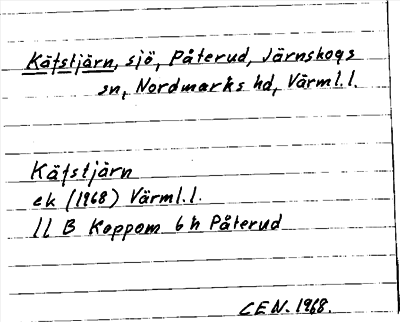 Kätstjärn, sjö, Påterud, Järnskogs
sn, Nordmarks hd, Värml.l.
Kätstjärn
ek (1968) Värml.l.
11 B Koppom 6 h Påterud
CEN. 1968.